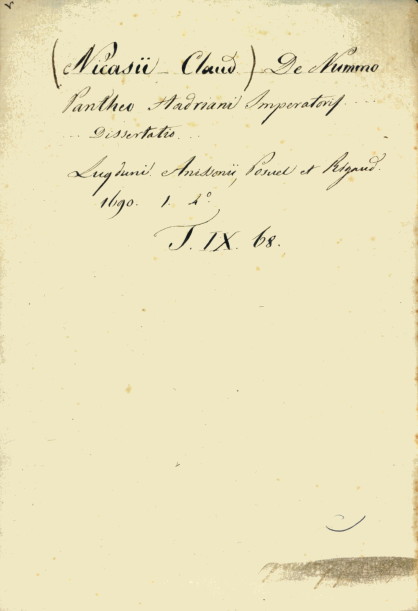 (Nicasii - Claud) - De Nummo
Pantheo Hadriani Imperatoris
Dissertatio
Lugduni. Anissonii, Posuel et Rigaud.
1690. 1. 4°
T. IX. 68.